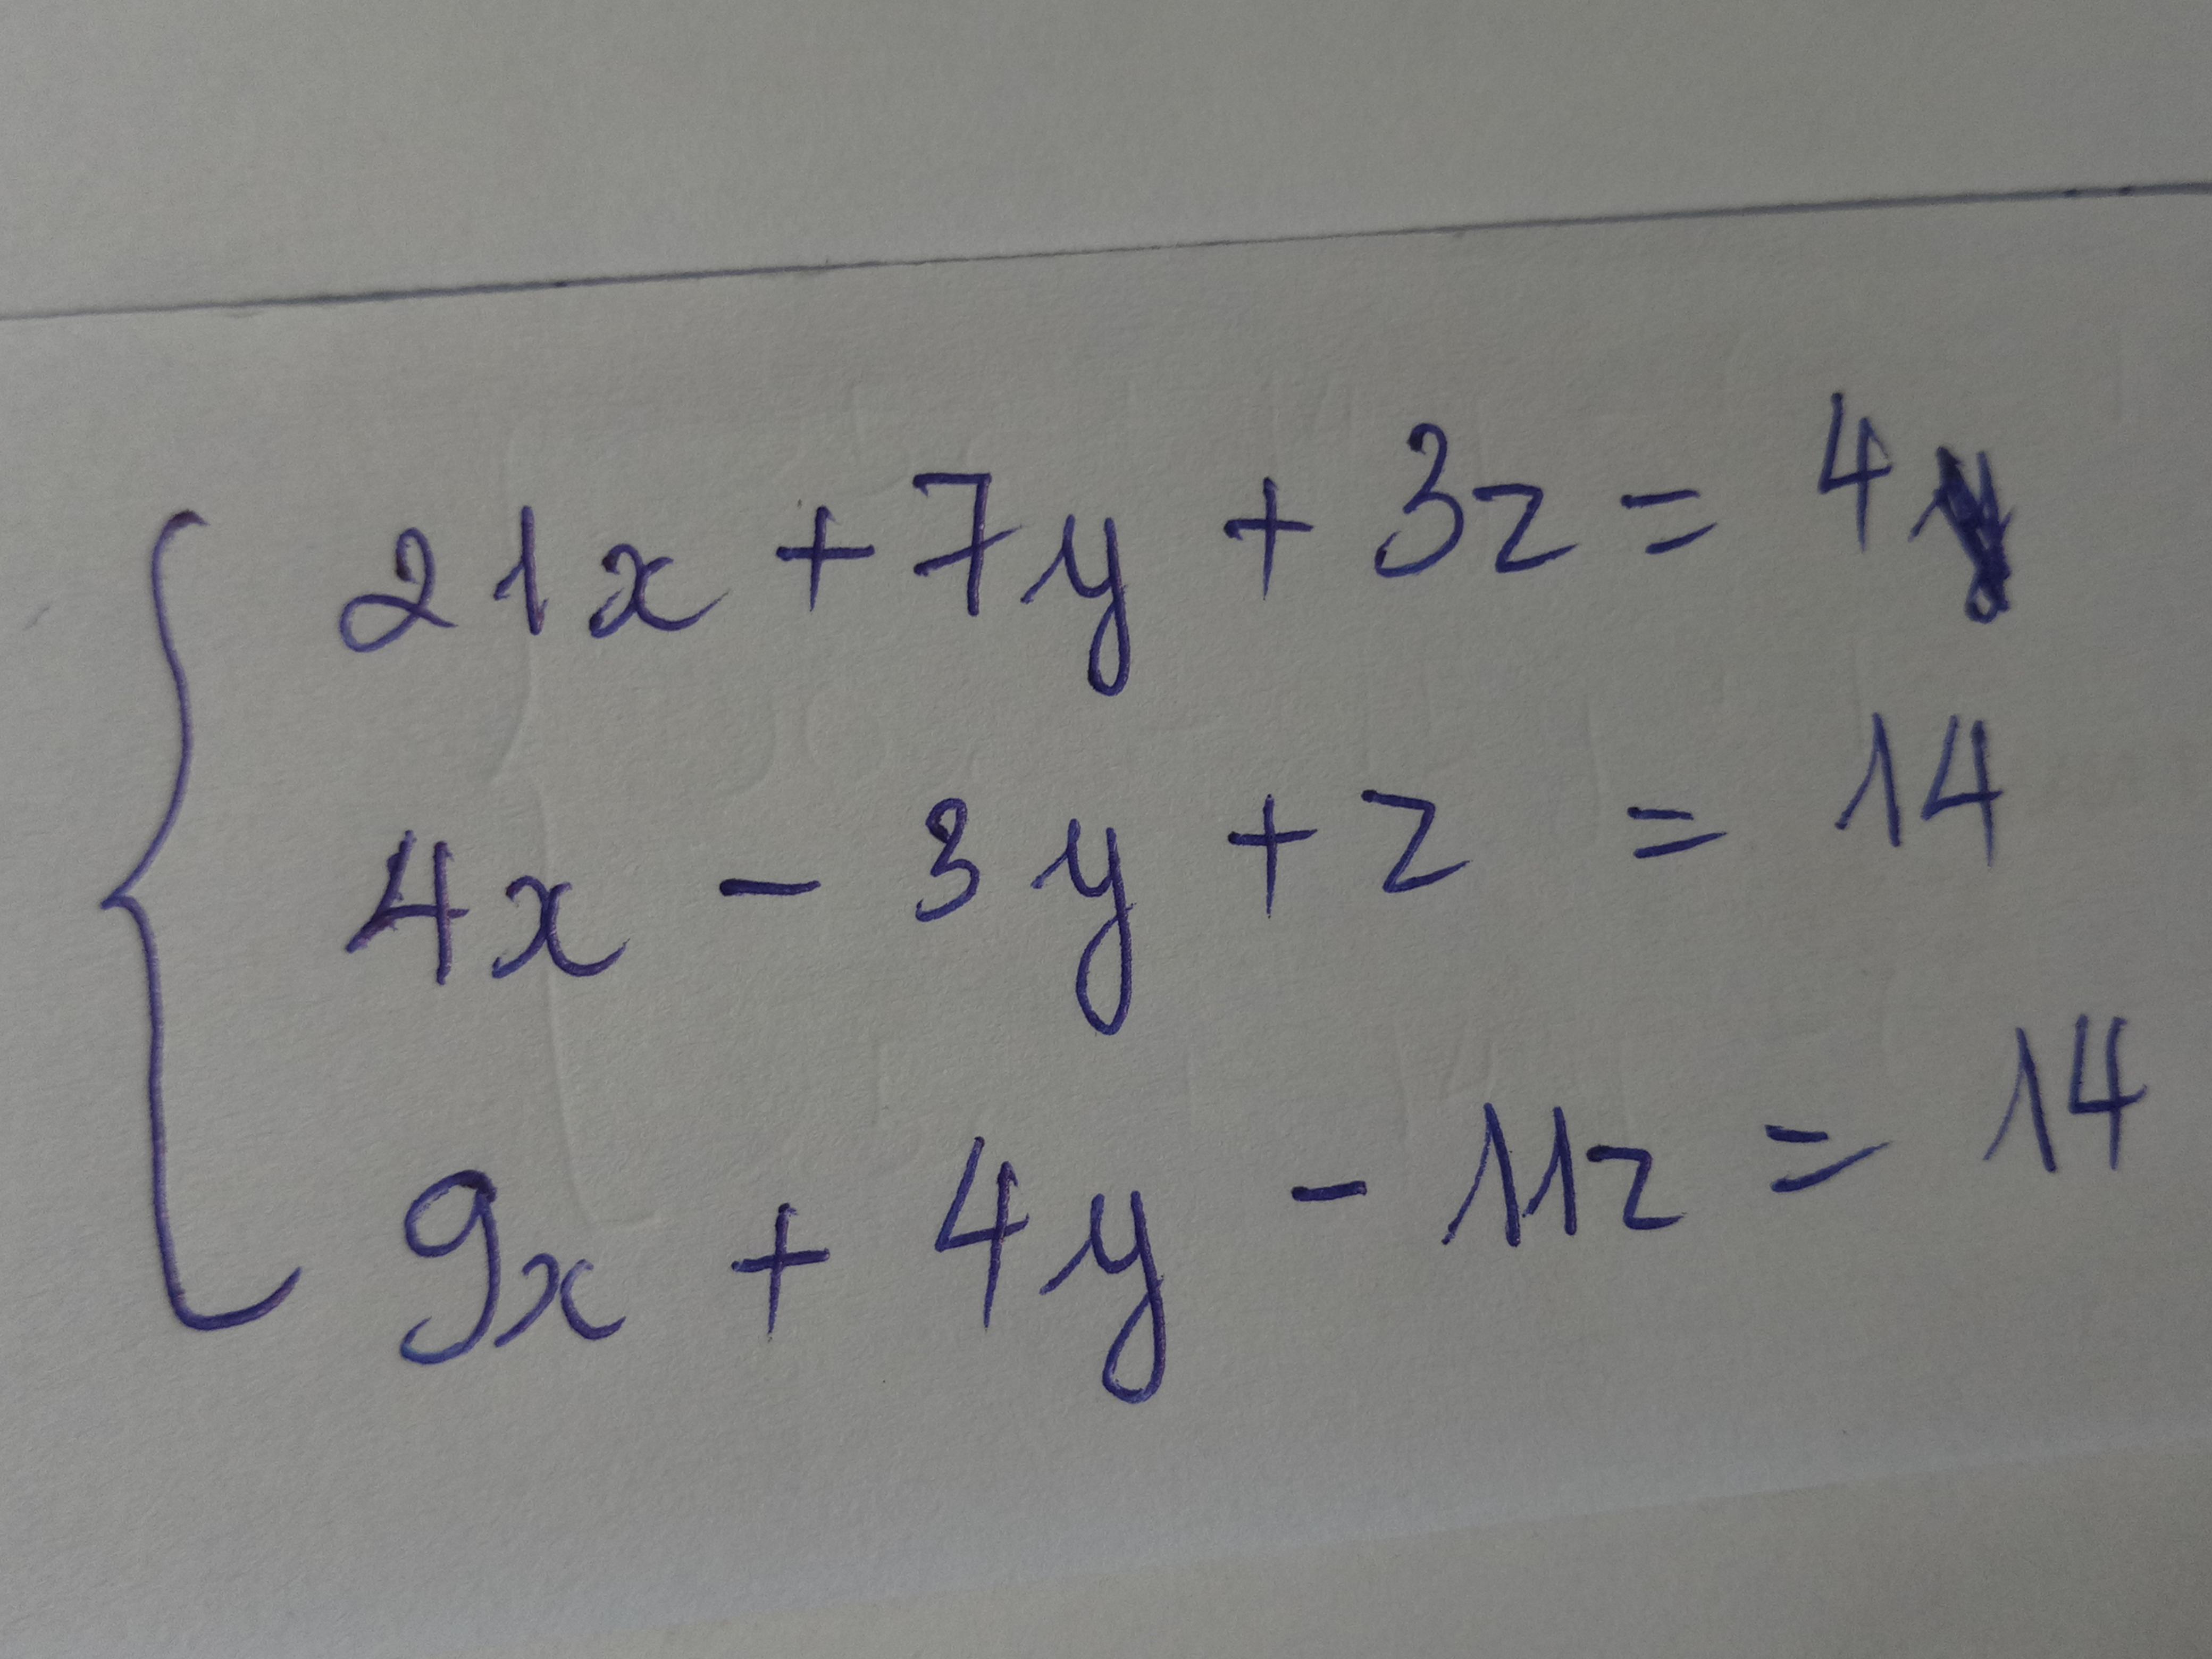 21x + 7y + 3z = 4y
4x - 3y + z = 14
9x + 4y - 11z = 14